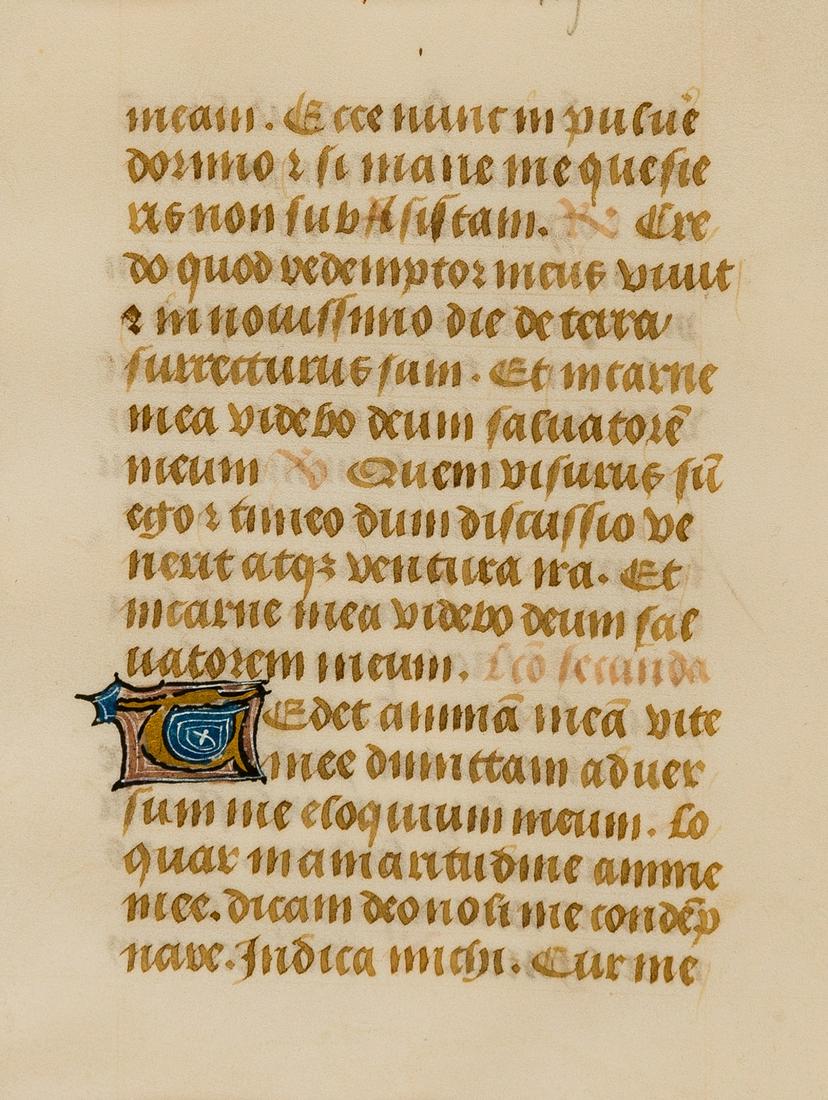 meam. Ecce nunc in puluē
dormio ⁊ si mane me quesie
ris non subsistam. ℟ Cre
do quod redemptor meus viuit
⁊ in nouissimo die de terra
surrecturus sum. Et in carne
mea videbo deum saluatorē
meum ℣ Quem visurus sū
ego ⁊ timeo dum discussio ve
nerit atqꝫ ventura ira. Et
in carne mea videbo deum sal
uatorem meum. Lcō secunda
TEdet animā meā vite
mee dimittam aduer
sum me eloquium meum. Lo
quar in amaritudine anime
mee. dicam deo noli me condēp
nare. Indica michi. Cur me